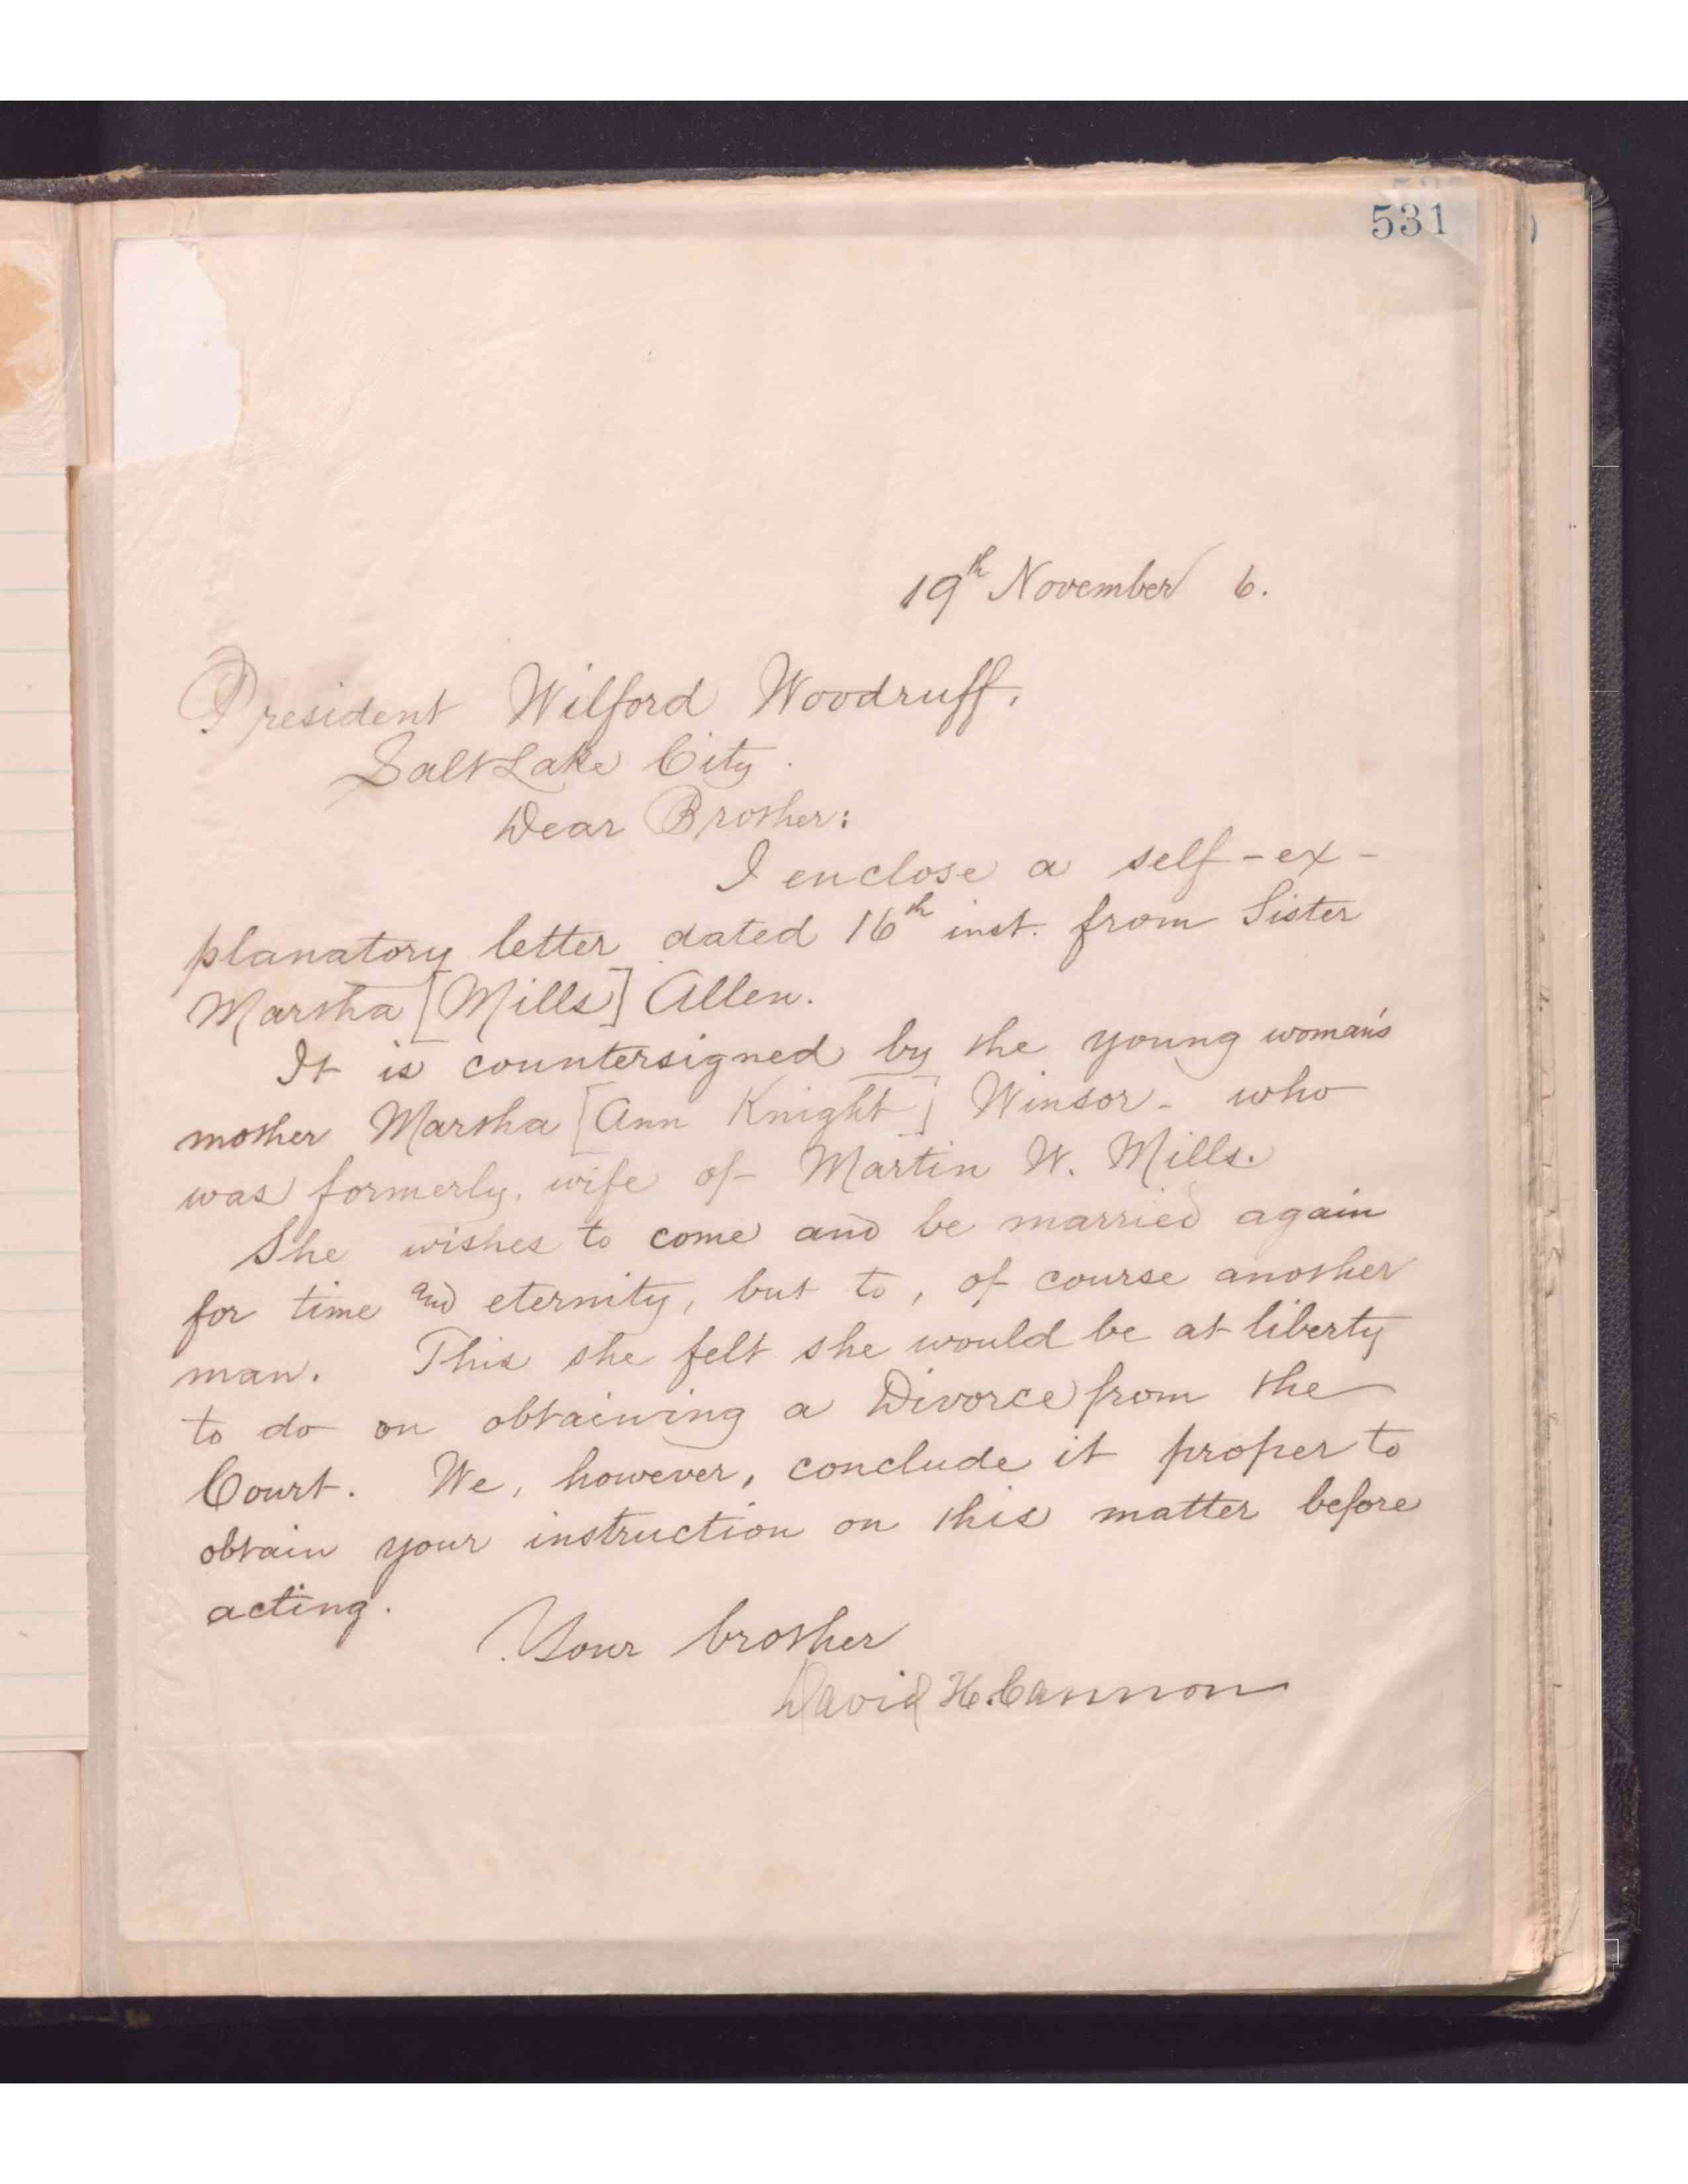 531
19th November 6.
President Wilford Woodruff,
Salt Lake City.
Dear Brother:
I enclose a self-ex-
planatory letter dated 16th inst. from Sister
Martha [Mills] Allen.
It is countersigned by the young woman's
mother Martha [Ann Knight] Winsor - who
was formerly, wife of Martin W. Mills.
She wishes to come and be married again
for time and eternity, but to, of course another
man. This she felt she would be at liberty
to do on obtaining a Divorce from the
Court. We, however, conclude it proper to
obtain your instruction on this matter before
acting.
Your brother
David H. Cannon